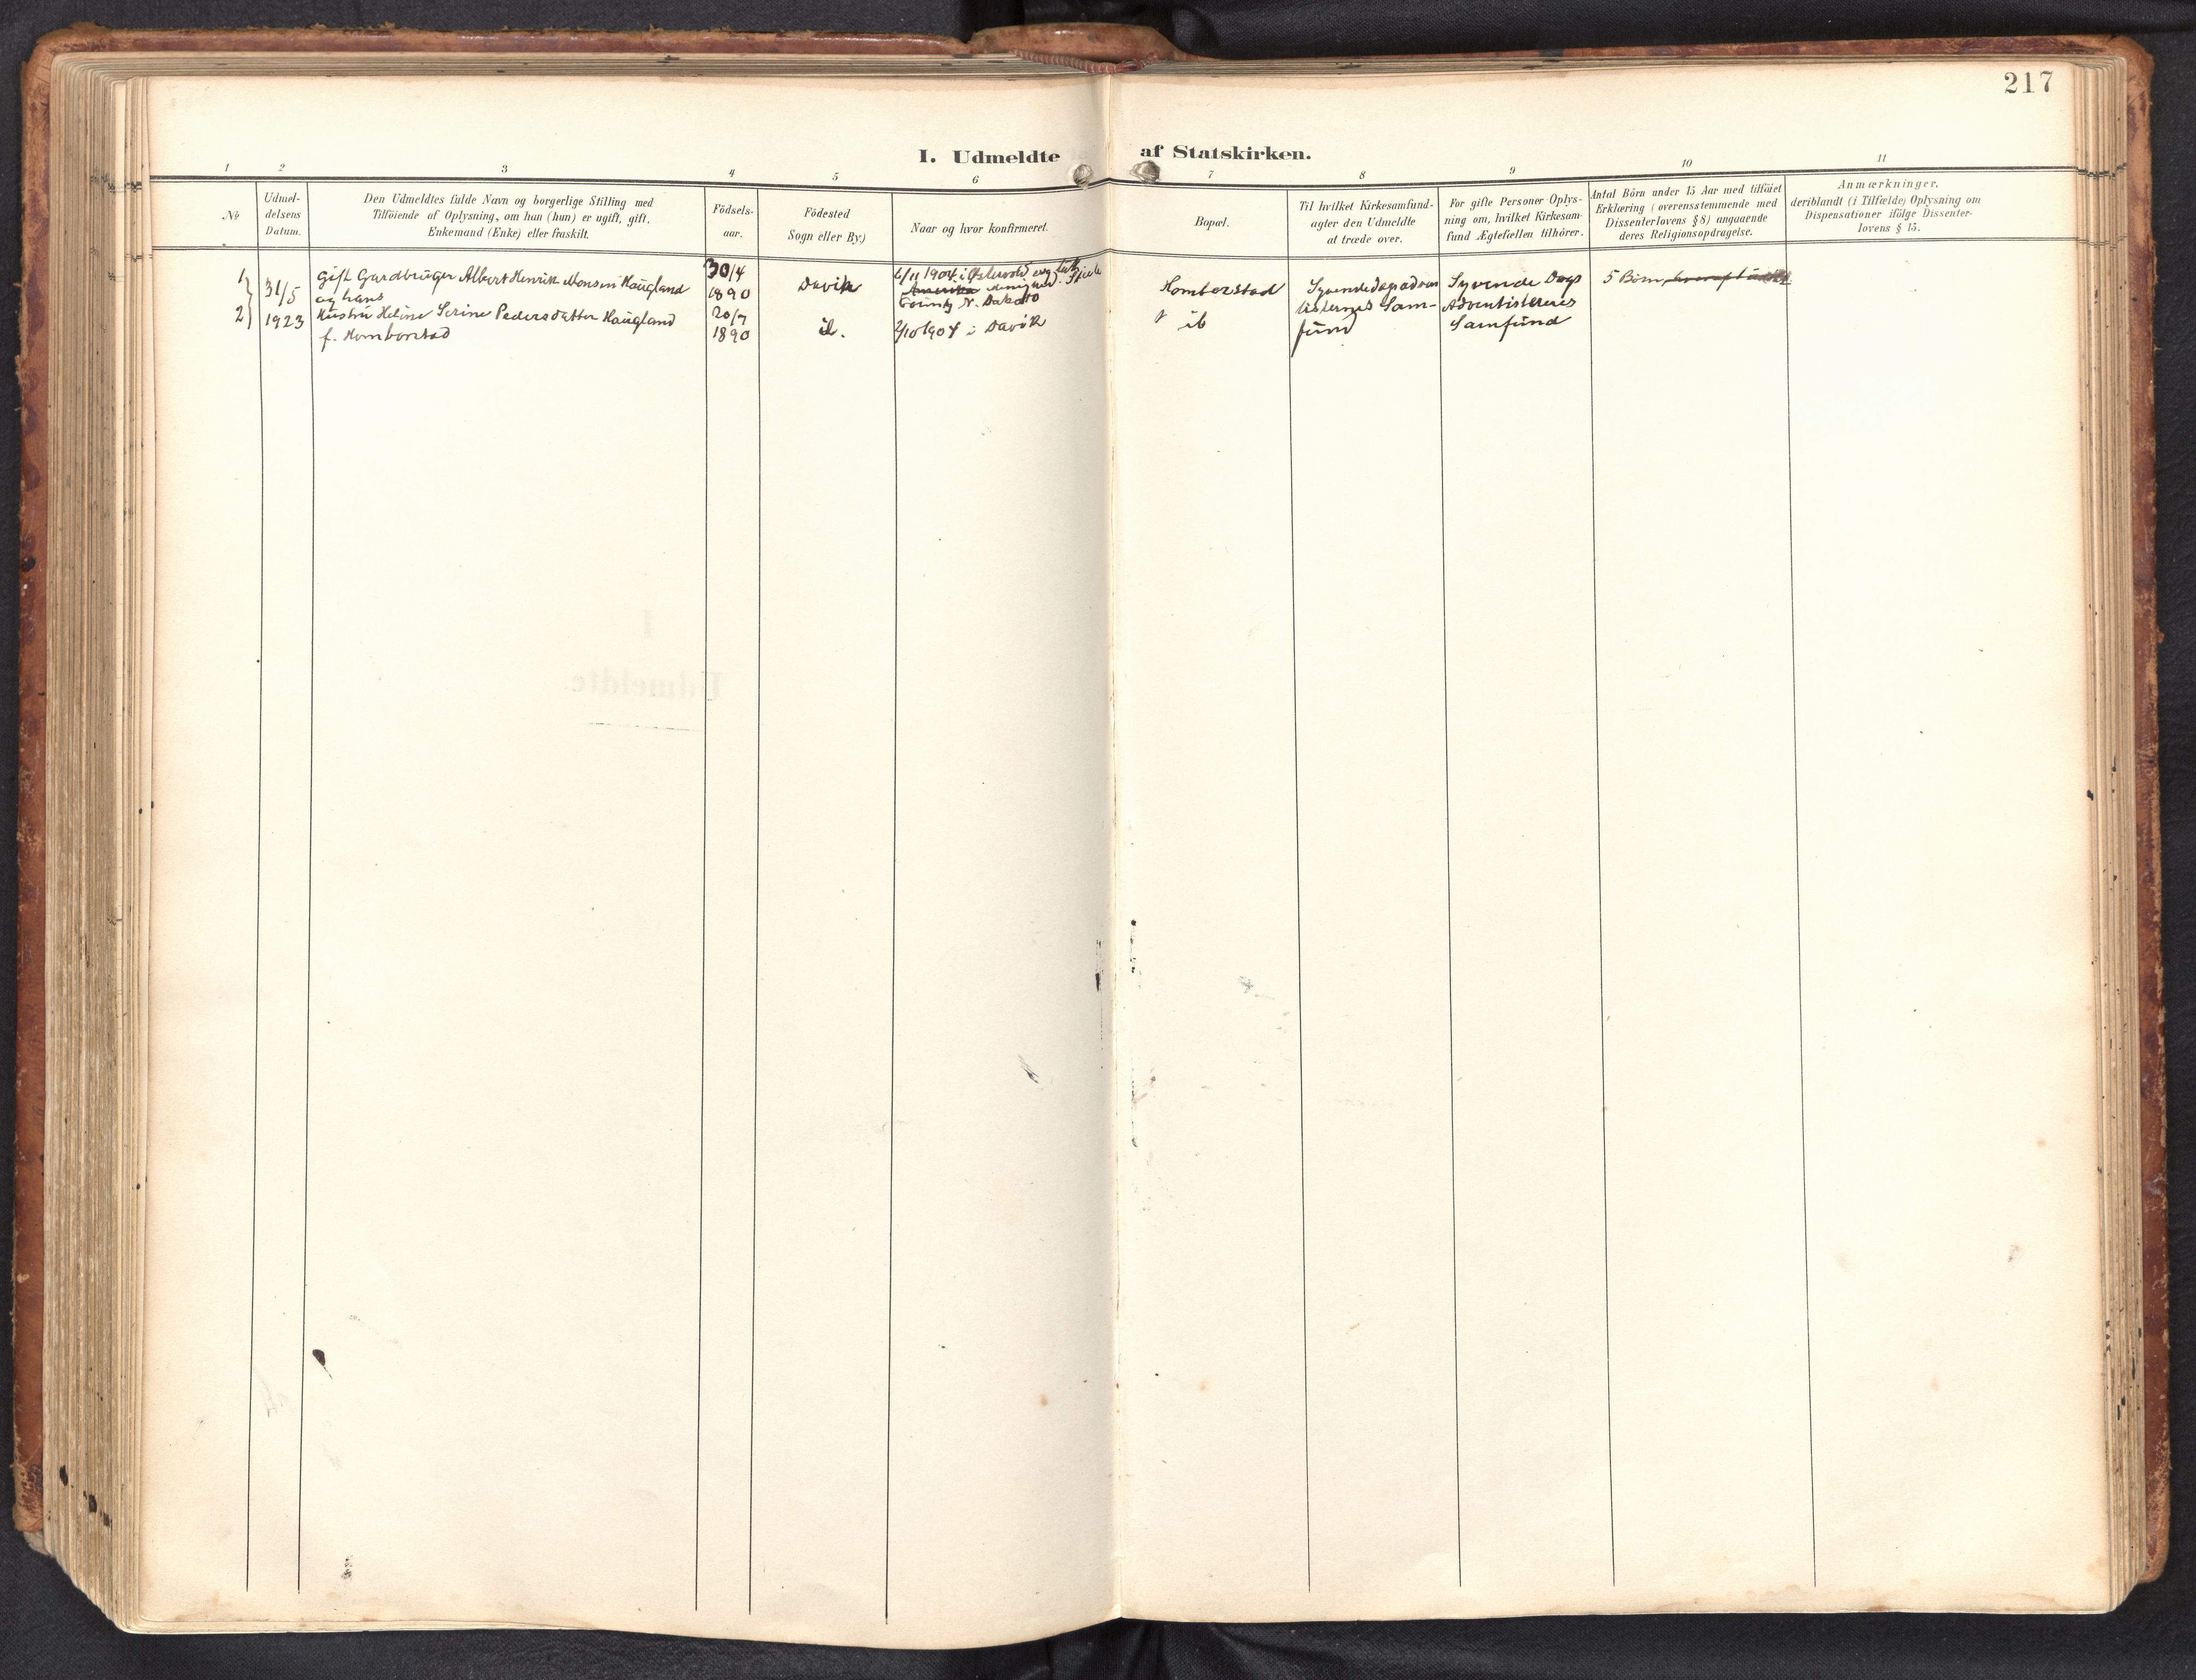 217
I. Udmeldte af Statskirken.
1 2 3 4 5 6 7 8 9 10 11
No
Udmel-
delsens
Datum.
Den Udmeldtes fulde Navn og borgerlige Stilling med
Tilföiende af Oplysning, om han (hun) er ugift, gift,
Enkemand (Enke) eller fraskilt.
Födsels-
aar.
Födested
Sogn eller By)
Naar og hvor konfirmeret.
Bopæl.
Til hvilket Kirkesamfund-
agter den Udmeldte
at træde over.
For gifte Personer Oplys-
ning om, hvilket Kirkesam-
fund Ægtefællen tilhörer.
Antal Börn under 15 Aar med tilföiet
Erklæring (overensstemmende med
Dissenterlovens § 8) angaaende
deres Religionsopdragelse.
Anmærkninger.
deriblandt (i Tilfælde) Oplysning om
Dispensationer ifölge Dissenter-
lovens § 15.
1
2
31/5
1923
Gift Gardbruger Albert Henrik Monsen Haugland
og hans
Hustru Heline Serine Pedersdatter Haugland
f. Homborstad
30/4
1890
20/7
1890
Davik
ib.
6/11 1904 i Østervold evg. luth.
Amerika menighed. Steele
County N. Dakota
2/10 1904 i Davik
Homborstad
ib
Syvendedagsadven
tisternes Sam-
fund
Syvende Dags
Adventisternes
Samfund
5 Börn,
I
Udmeldte.